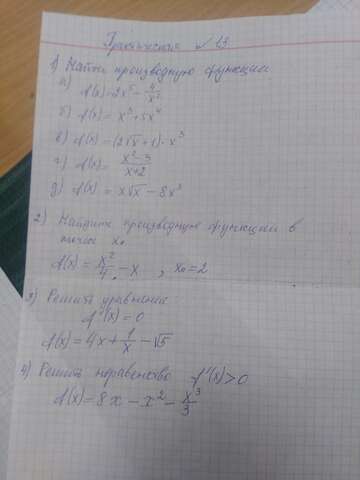 Практическая №13
1) Найти производную функции
а) f(x)=2x⁵ - 4/x²
б) f(x) = x³+5x⁴
в) f(x) = (2√x+1)·x³
г) f(x) = (x²-3)/(x+2)
д) f(x) = x√x - 8x³
2) Найдите производную функции в
точке x₀
f(x) = x²/4 - x , x₀=2
3) Решить уравнение
f'(x)=0
f(x)=4x+1/x-√5
4) Решить неравенство f'(x)>0
f(x)=8x-x²-x³/3